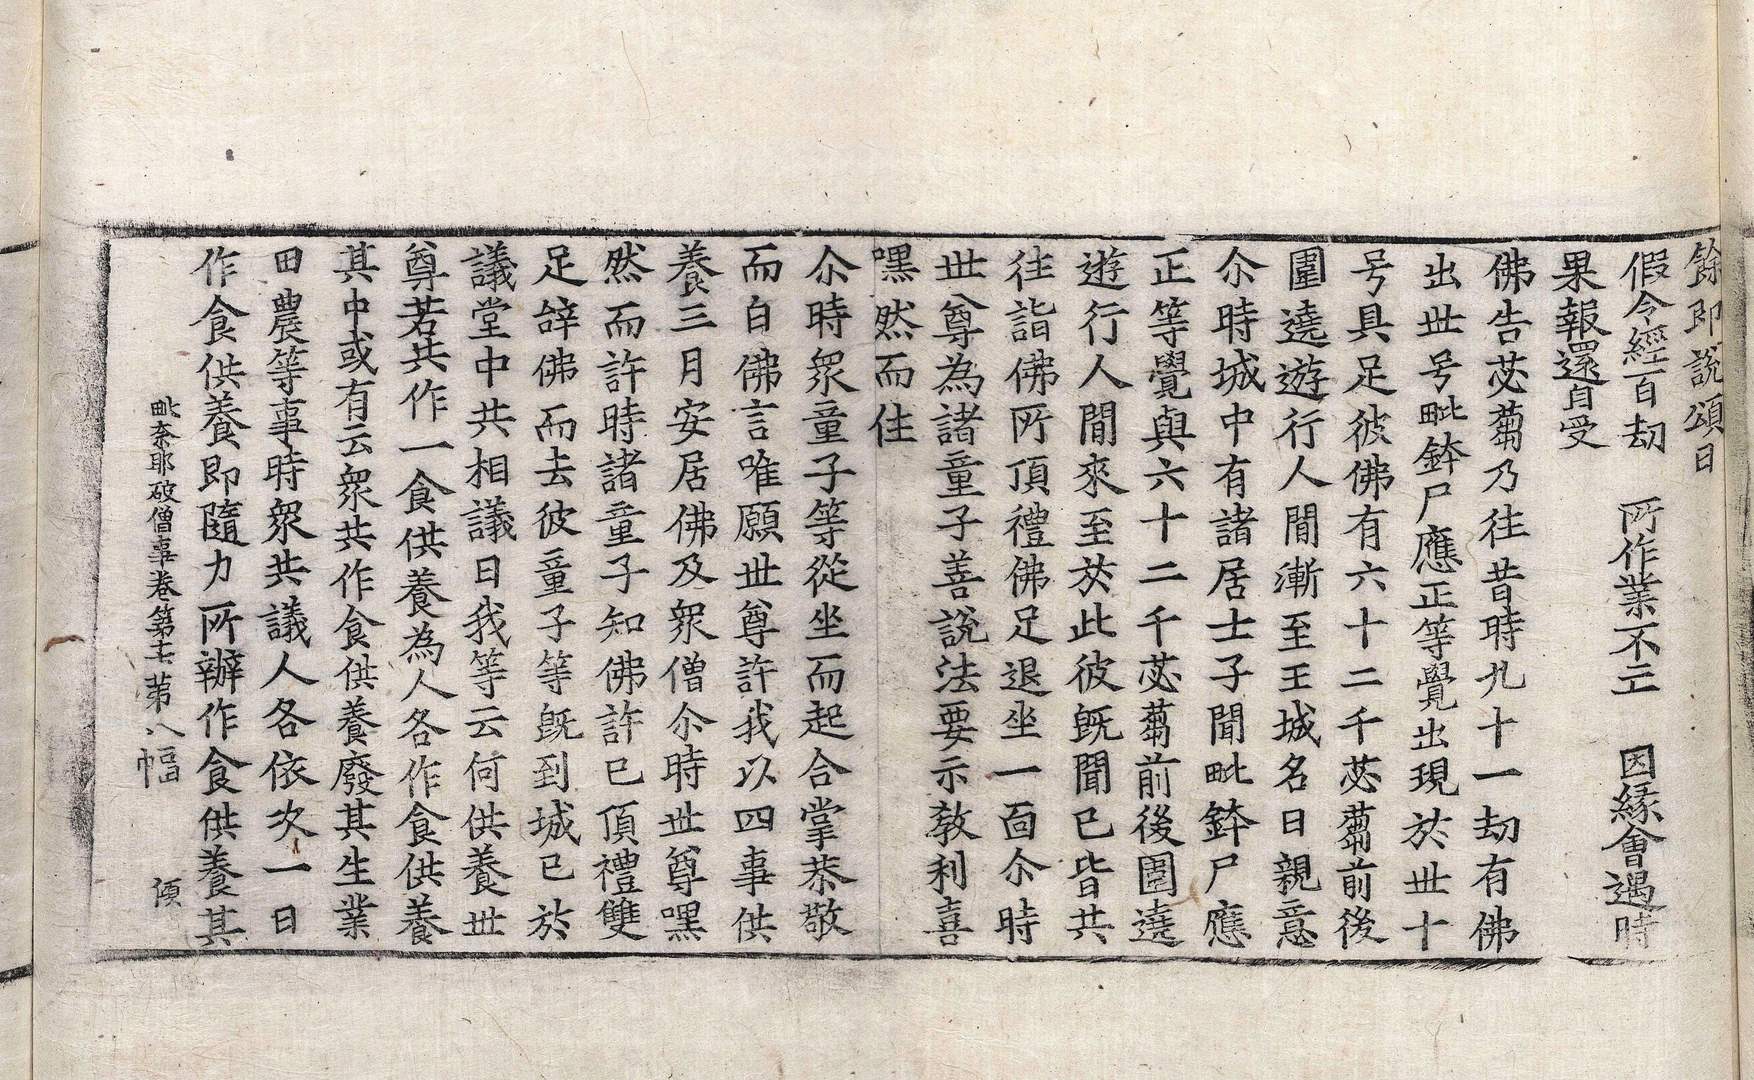 餘即說頌曰
假令經百劫　所作業不亡　因緣會遇時
果報還自受
佛告苾蒭乃往昔時九十一劫有佛
出世号毗鉢尸應正等覺出現於世十
号具足彼佛有六十二千苾蒭前後
圍遶遊行人間漸至王城名曰親意
尒時城中有諸居士子聞毗鉢尸應
正等覺與六十二千苾蒭前後圍遶
遊行人間來至於此彼既聞已皆共
往詣佛所頂禮佛足退坐一面尒時
世尊為諸童子善說法要示教利喜
嘿然而住
尒時衆童子等從坐而起合掌恭敬
而白佛言唯願世尊許我以四事供
養三月安居佛及衆僧尒時世尊嘿
然而許時諸童子知佛許已頂禮雙
足辝佛而去彼童子等既到城已於
議堂中共相議曰我等云何供養世
尊若共作一食供養為人各作食供養
其中或有云衆共作食供養廢其生業
田農等事時衆共議人各依次一日
作食供養即隨力所辦作食供養其
毗奈耶破僧事卷第十六 第八幅 傾